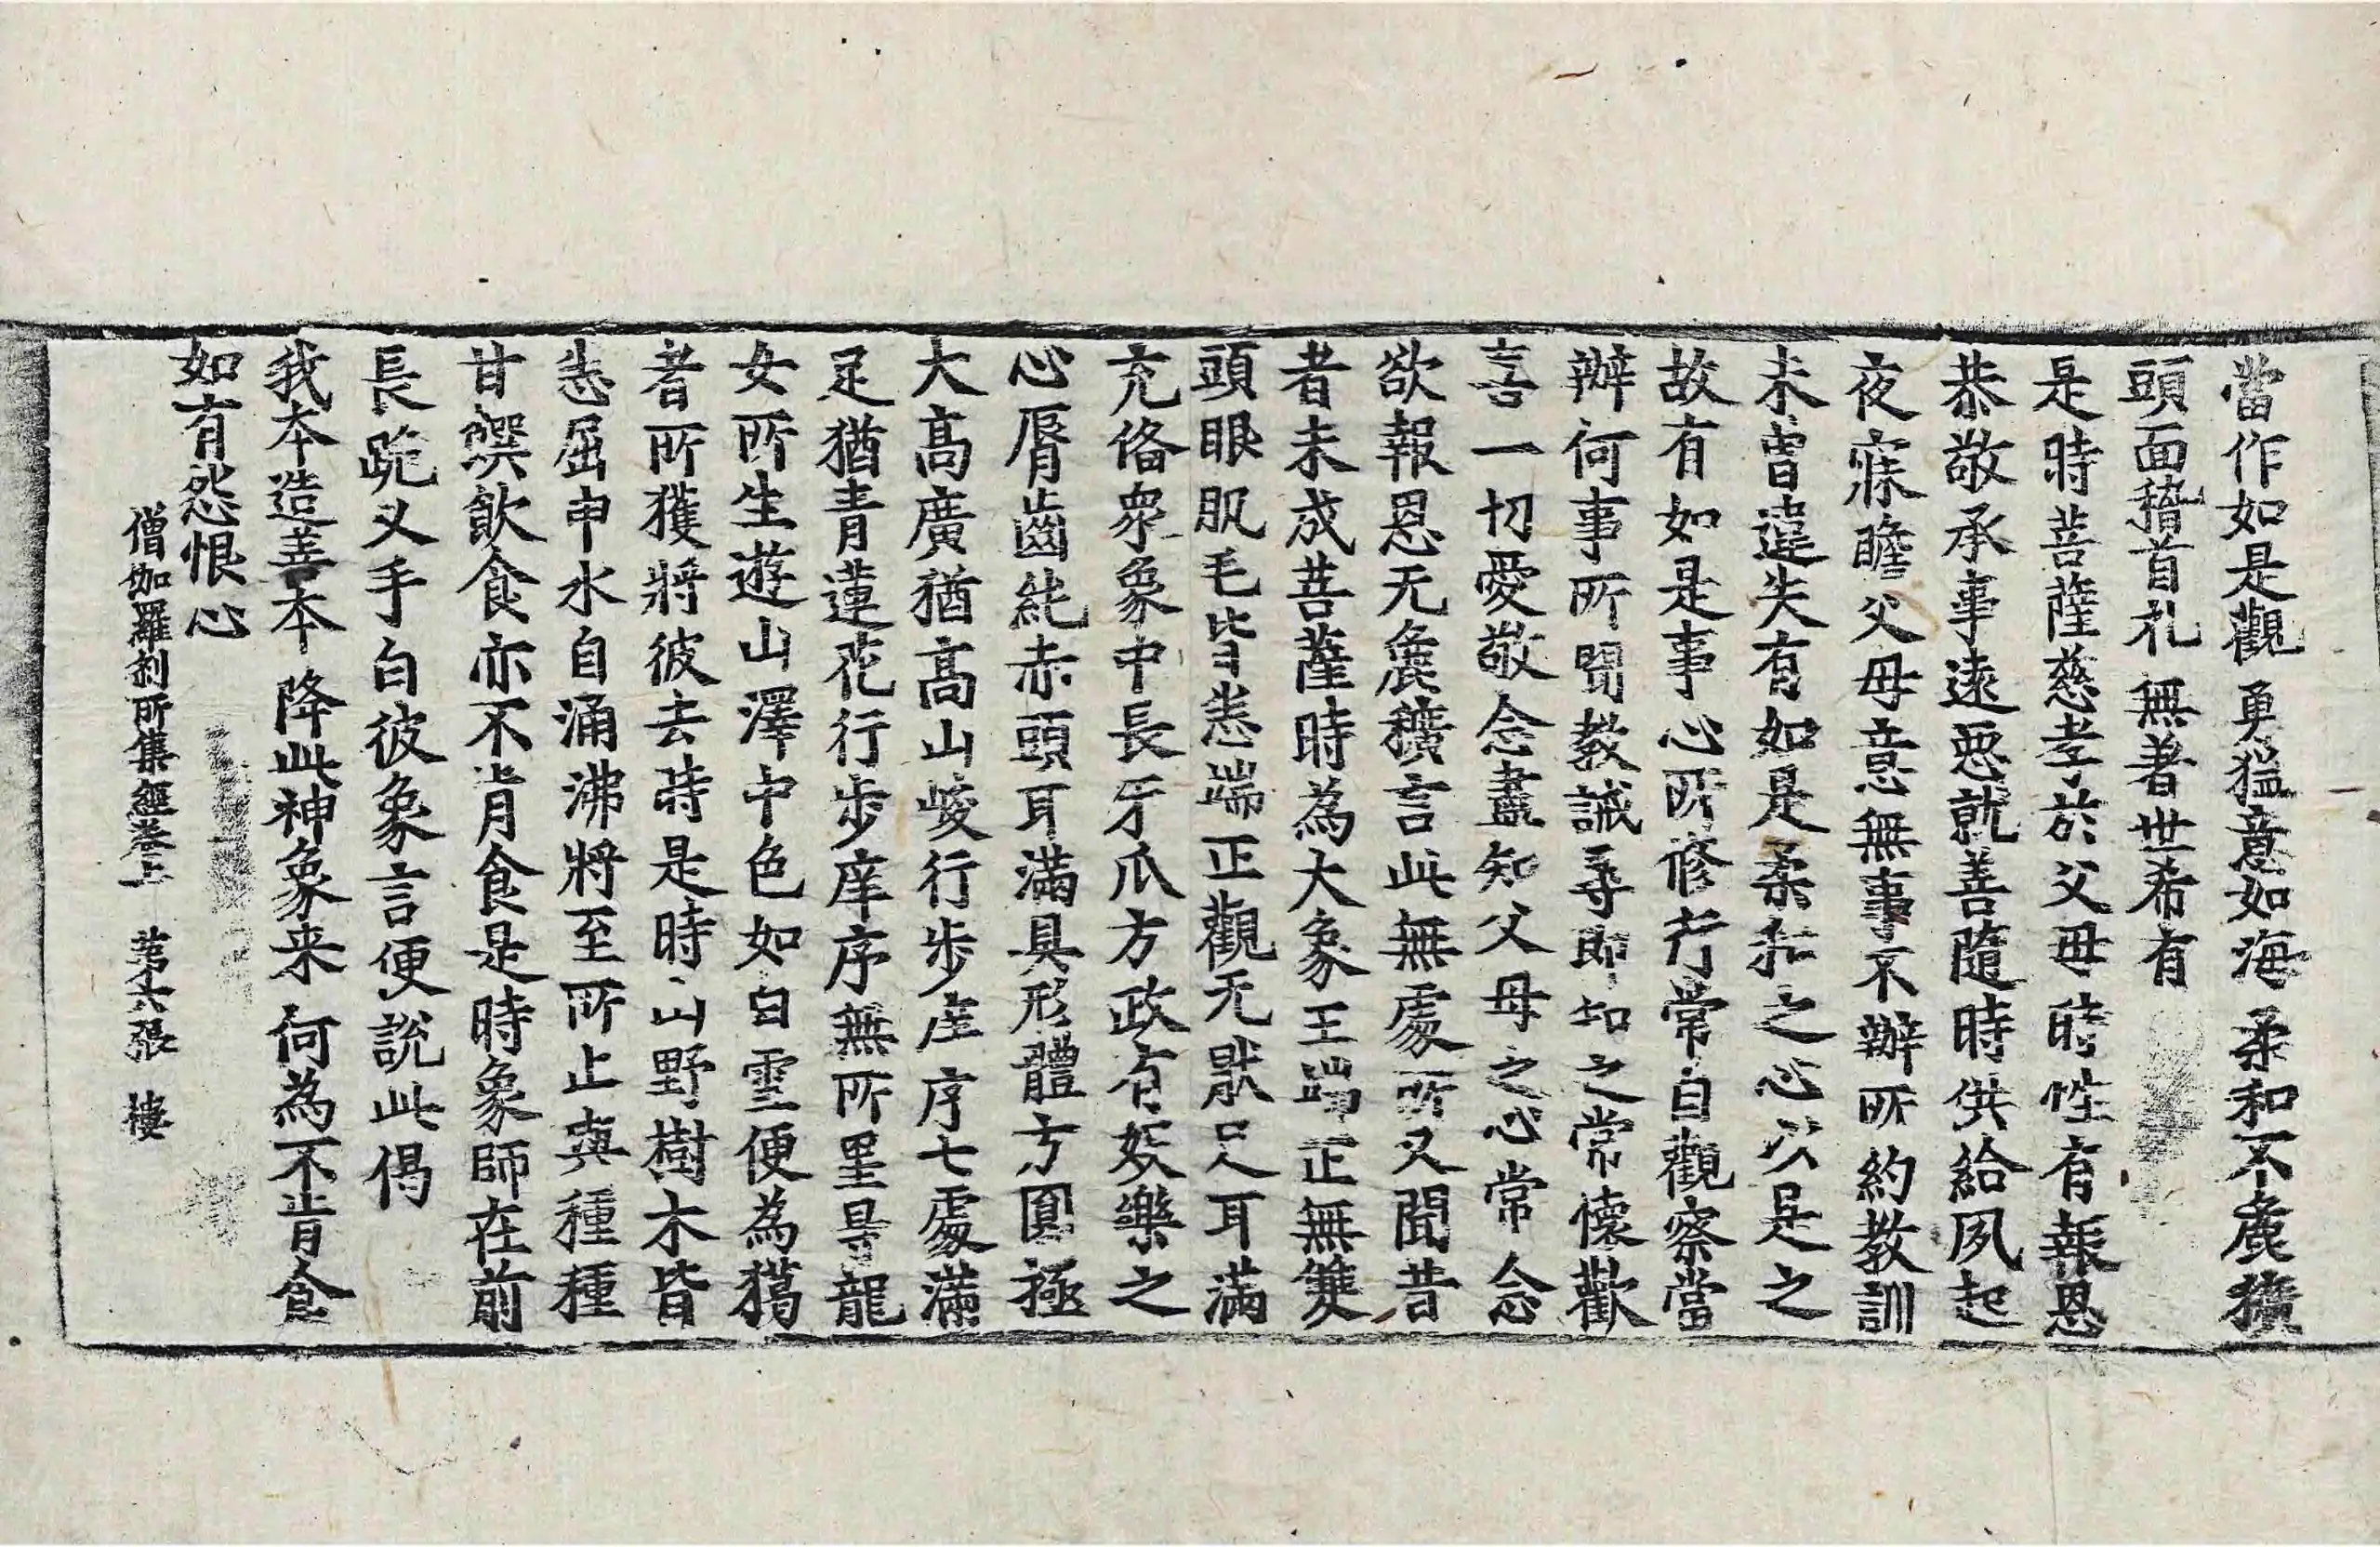 當作如是觀 勇猛意如海 柔和不麁獷
頭面稽首礼 無著世希有
是時菩薩慈孝於父母時性有報恩
恭敬承事遠惡就善隨時供給夙起
夜寐瞻父母意無事不辦所約教訓
未曾違失有如是柔和之心以是之
故有如是事心所修行常自觀察當
辦何事所聞教誡尋即知之常懷歡
喜一切愛敬念盡知父母之心常念
欲報恩无麁獷言此無處所又聞昔
者未成菩薩時為大象王端正無雙
頭眼肌毛皆悉端正觀无猒足耳滿
充俻衆象中長牙爪方政有娛樂之
心脣齒純赤頭耳滿具形體方圓極
大高廣猶高山峻行步庠序七處滿
足猶青蓮花行步庠序無所罣㝵龍
女所生遊山澤中色如白雪便為獦
者所獲將彼去時是時山野樹木皆
悉屈申水自涌沸將至所止與種種
甘饌飲食亦不肯食是時象師在前
長跪叉手白彼象言便說此偈
我本造善本 降此神象来 何為不肯食
如有怨恨心
僧伽羅刹所集經卷上 第六張 樓